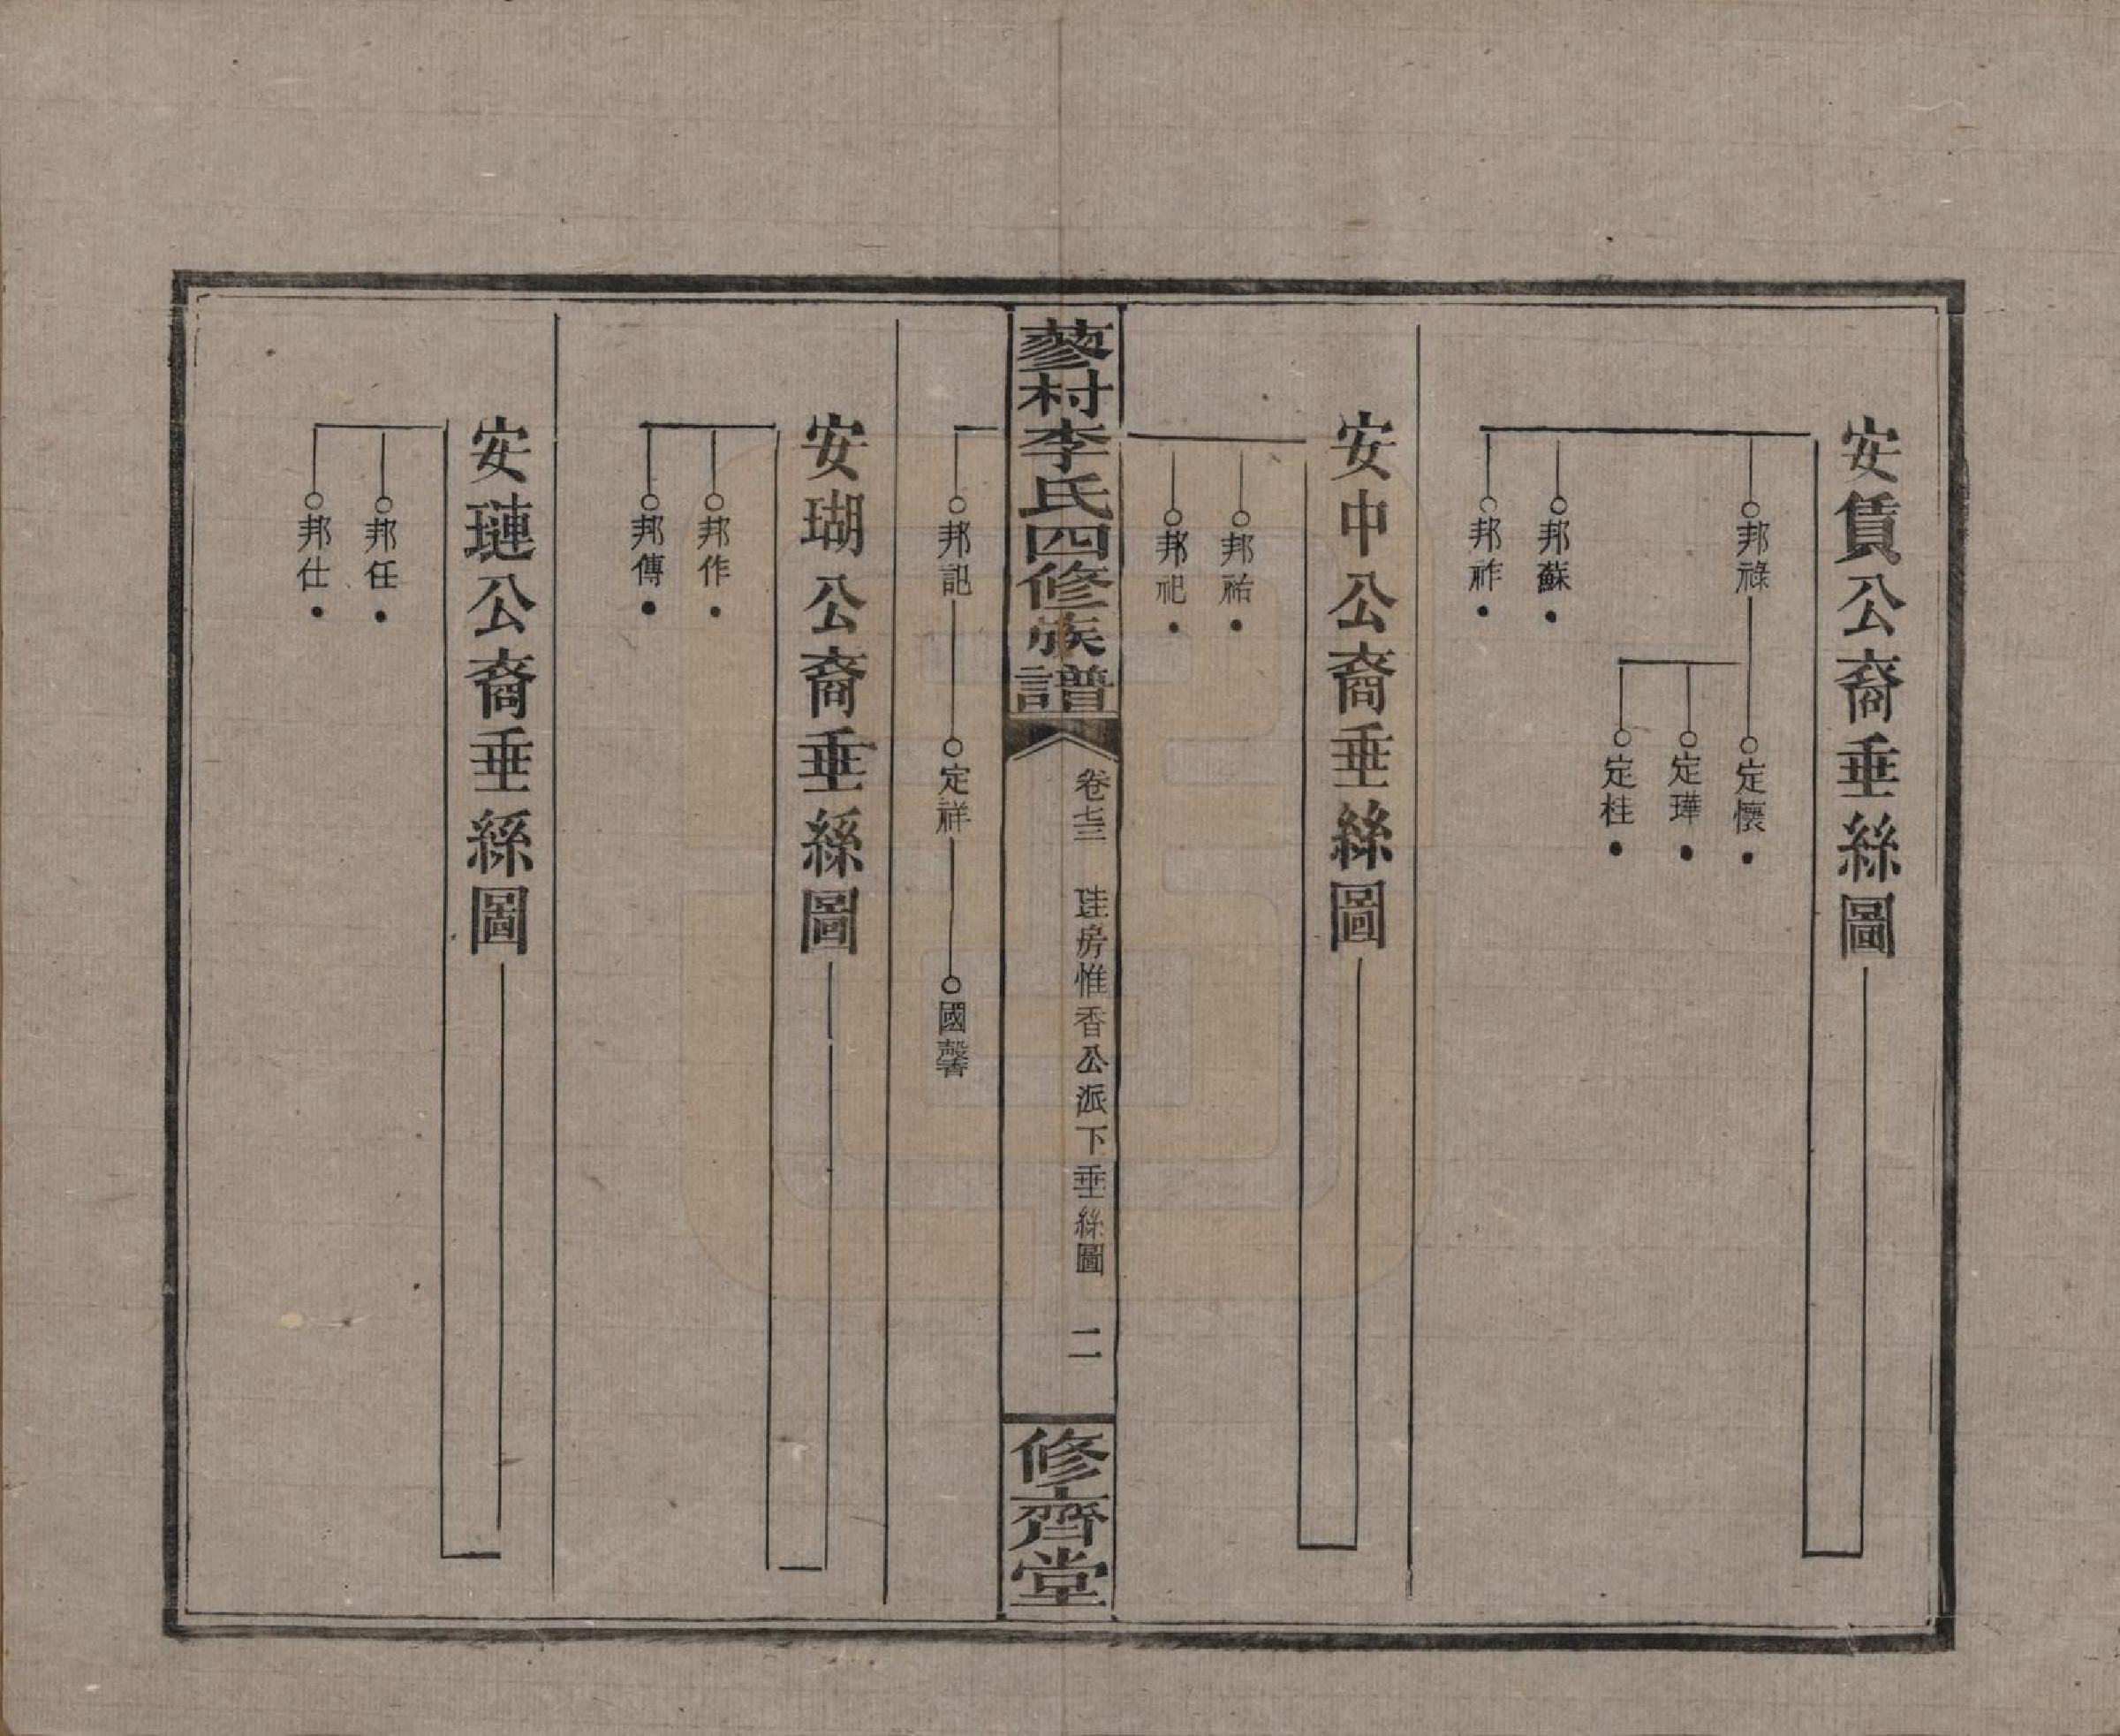 安賃公裔垂絲圖
邦祿
定懷
定瑋
定桂
邦蘇
邦祚
安中公裔垂絲圖
邦祐
邦祀
蓼村李氏四修族譜
卷七三
珪房惟香公派下垂絲圖
二
修齊堂
邦記
定祥
國馨
安瑚公裔垂絲圖
邦作
邦傳
安璉公裔垂絲圖
邦任
邦仕